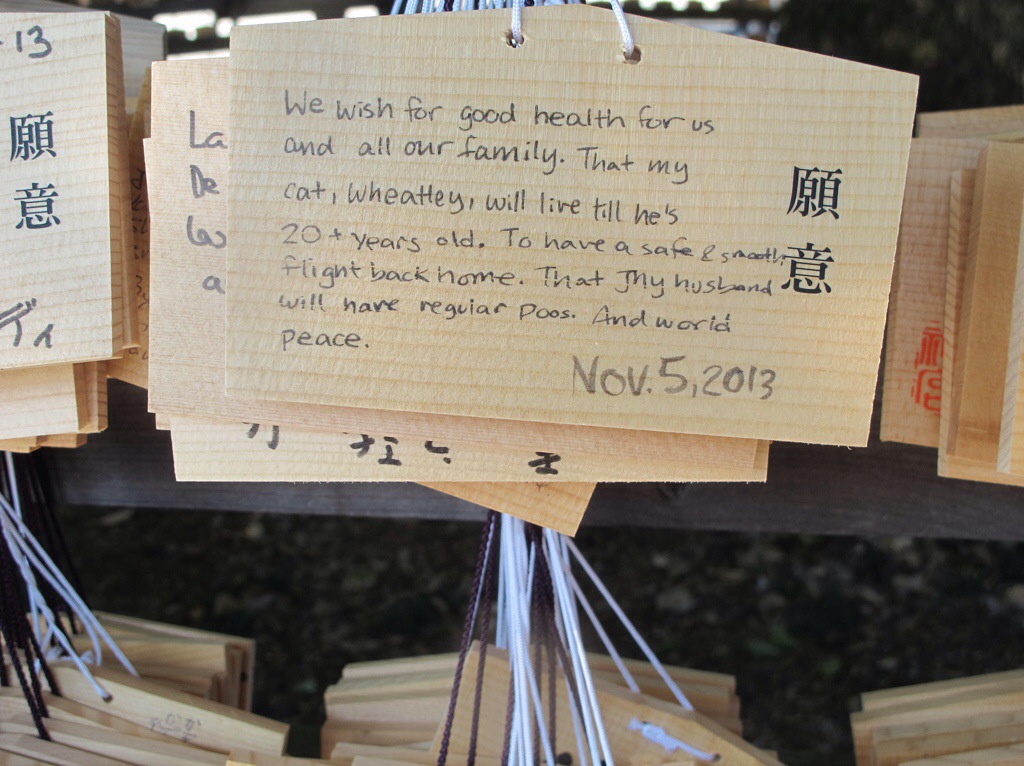 We wish for good health for us
and all our family. That my
cat, Wheatley, will live till he's
20+ years old. To have a safe & smooth
flight back home. That my husband
will have regular poos. And world
peace.
Nov. 5, 2013
願意
13
願意
ディ
La
De
a